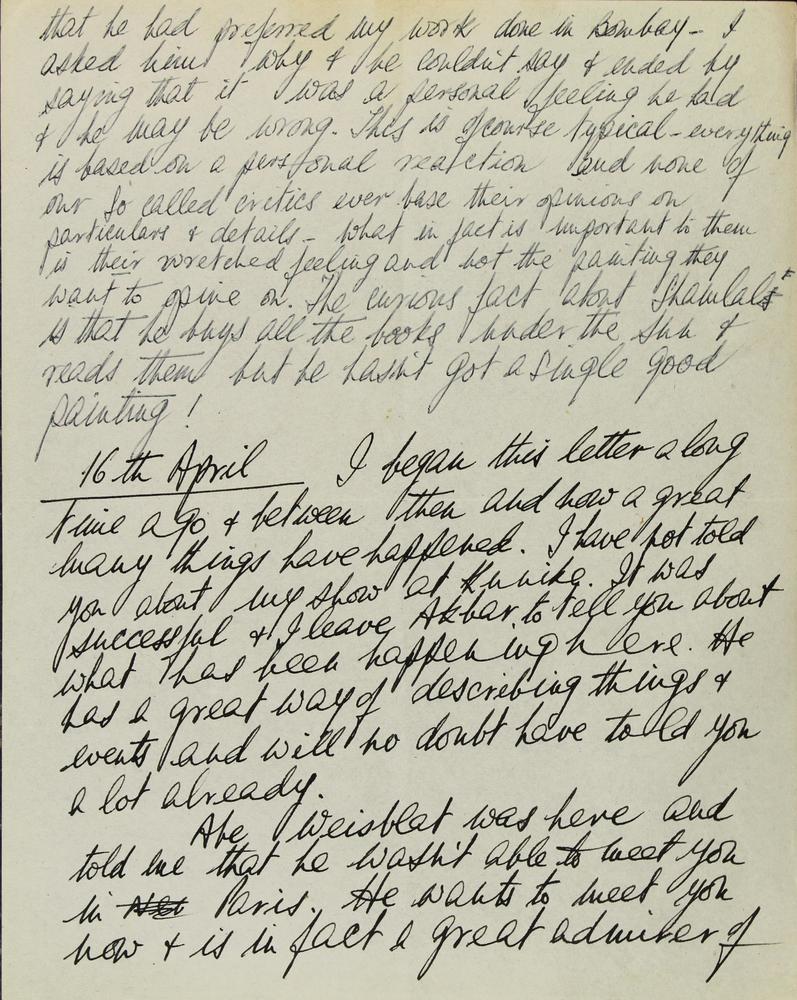 that he had preferred my work done in Bombay - I
asked him why & he couldn't say & ended by
saying that it was a personal feeling he had
& he may be wrong. This is ofcourse typical - everything
is based on a personal reaction and none of
our so called critics ever base their opinions on
particulars & details - what in fact is important to them
is their wretched feeling and not the painting they
want to opine on. The curious fact about Shamlals
is that he buys all the books under the sun &
reads them but he hasn't got a single good
painting!
16th April I began this letter a long
time ago & between then and now a great
many things have happened. I have not told
you about my show at Kunika. It was
successful & I leave Akbar to tell you about
what has been happening here. He
has a great way of describing things &
events and will no doubt have told you
a lot already.
Abe Weisblat was here and
told me that he wasn't able to meet you
in Paris. He wants to meet you
now & is in fact a great admirer of